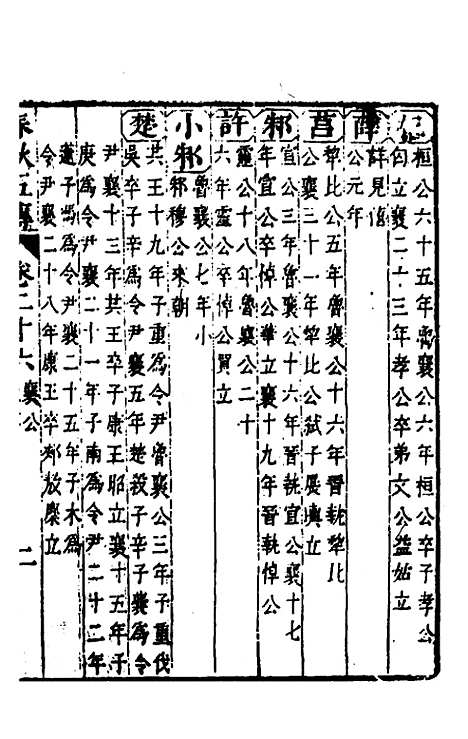 桓公六十五年魯襄公六年桓公卒子孝公
匄立襄二十三年孝公卒弟文公益姑立
薛
詳見僖
公元年
莒
犂比公五年魯襄公十六年晉執犂比
公襄三十一年犂比公弒子展輿立
邾
宣公三年魯襄公十六年晉執宣公襄十七
年宣公卒悼公華立襄十九年晉執悼公
許
靈公十八年魯襄公二十
六年靈公卒悼公買立
小邾
魯襄公七年小
邾穆公來朝
楚
共王十九年子重為令尹魯襄公三年子重伐
吳卒子辛為令尹襄五年楚殺子辛子襄為令
尹襄十三年共王卒子康王昭立襄十五年子
庚為令尹襄二十一年子南為令尹二十二年
薳子馮為令尹襄二十五年子木為
令尹襄二十八年康王卒郟敖麇立
春秋五傳 卷二十六 襄公 二